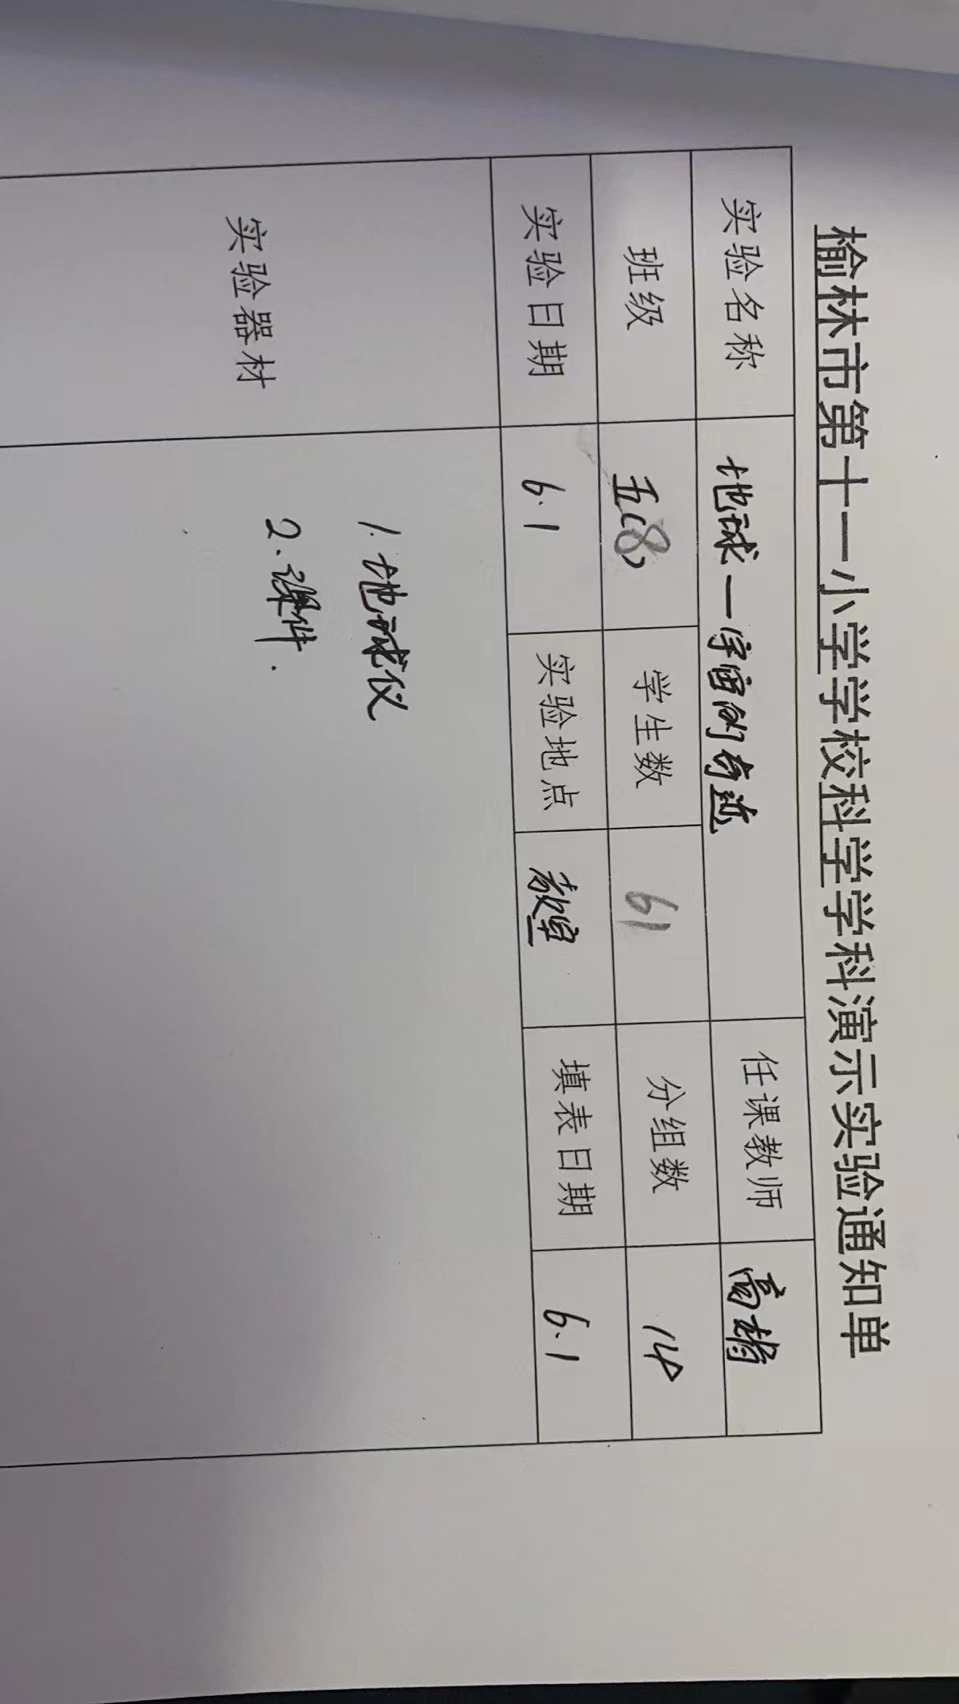 榆林市第十一小学学校科学学科演示实验通知单
实验名称 地球一宇宙的奇迹 任课教师 高
班级 五(8) 学生数 61 分组数 14
实验日期 6.1 实验地点 教室 填表日期 6.1
实验器材
1.地球仪
2.课件.